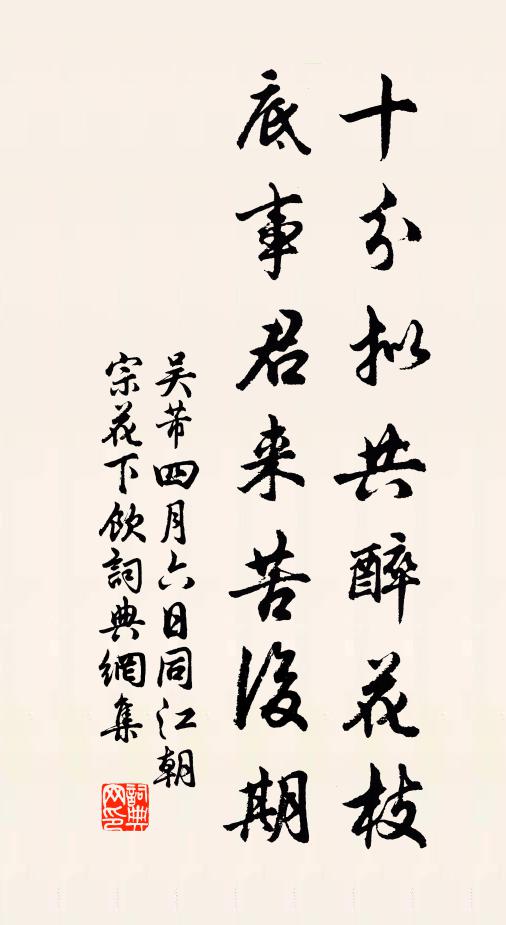 十分拟共醉花枝
底事君来苦后期
吴芾四月六日同江朝
宗花下饮词典網集
詞典
网印